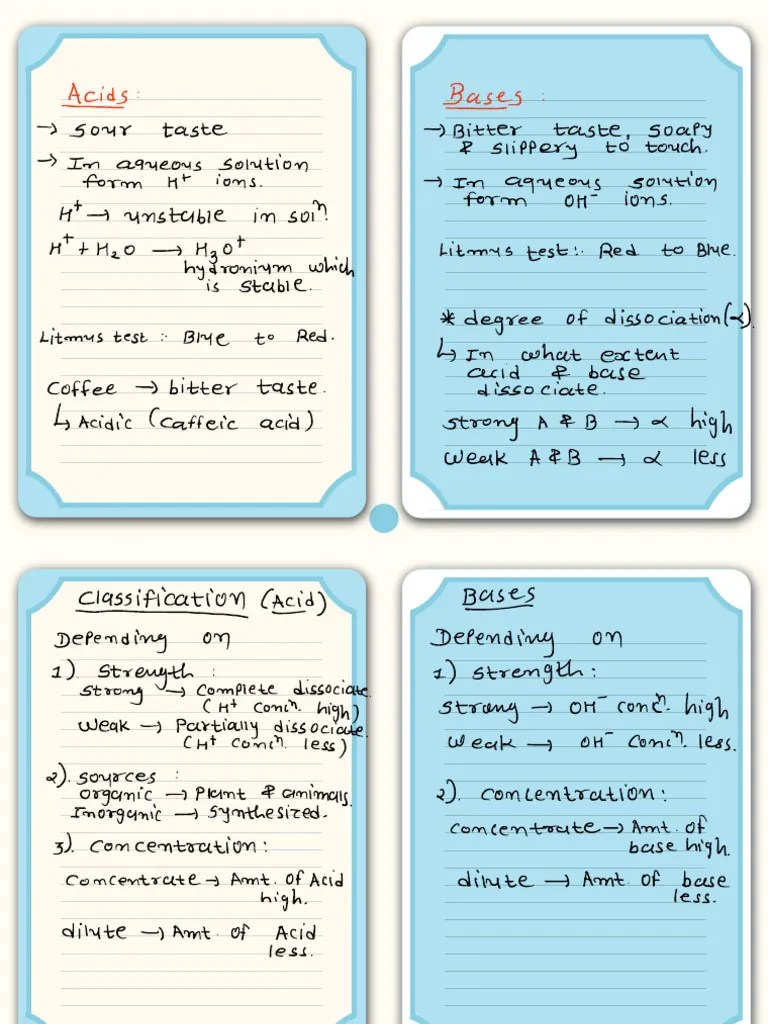 Acids :
→ Sour taste
→ In aqueous solution
form H⁺ ions.
H⁺ → unstable in solⁿ.
H⁺ + H₂O → H₃O⁺
hydronium which
is stable.
Litmus test :- Blue to Red.
Coffee → bitter taste.
↳ Acidic (Caffeic acid)
Bases :
→ Bitter taste, soapy
& slippery to touch.
→ In aqueous solution
form OH⁻ ions.
Litmus test:- Red to Blue.
* degree of dissociation(∝).
↳ In what extent
acid & base
dissociate.
strong A & B → ∝ high
weak A & B → ∝ less
Classification (Acid)
Depending on
1) Strength :
strong → Complete dissociate.
(H⁺ concⁿ. high)
weak → Partially dissociate.
(H⁺ concⁿ. less)
2). Sources :
organic → Plant & animals.
Inorganic → Synthesized.
3). Concentration :
Concentrate → Amt. of Acid
high.
dilute → Amt. of Acid
less.
Bases
Depending on
1) Strength :
strong → OH⁻ concⁿ. high
weak → OH⁻ concⁿ. less.
2). Concentration :
Concentrate → Amt. of
base high.
dilute → Amt. of base
less.